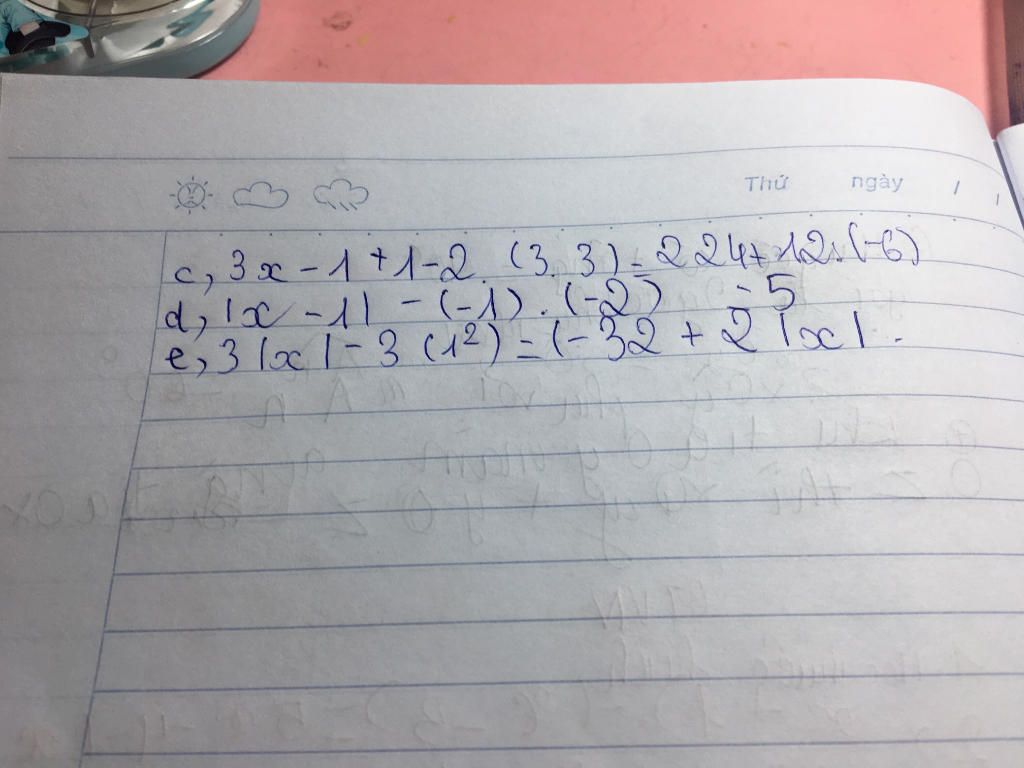 Thứ ngày / /
c, 3x - 1 + 1 - 2. (3. 3) = 224 + 12. (-6)
d, |x - 1| - (-1) . (-2) = 5
e, 3 |x| - 3 (1²) = (-32 + 2 |x| .